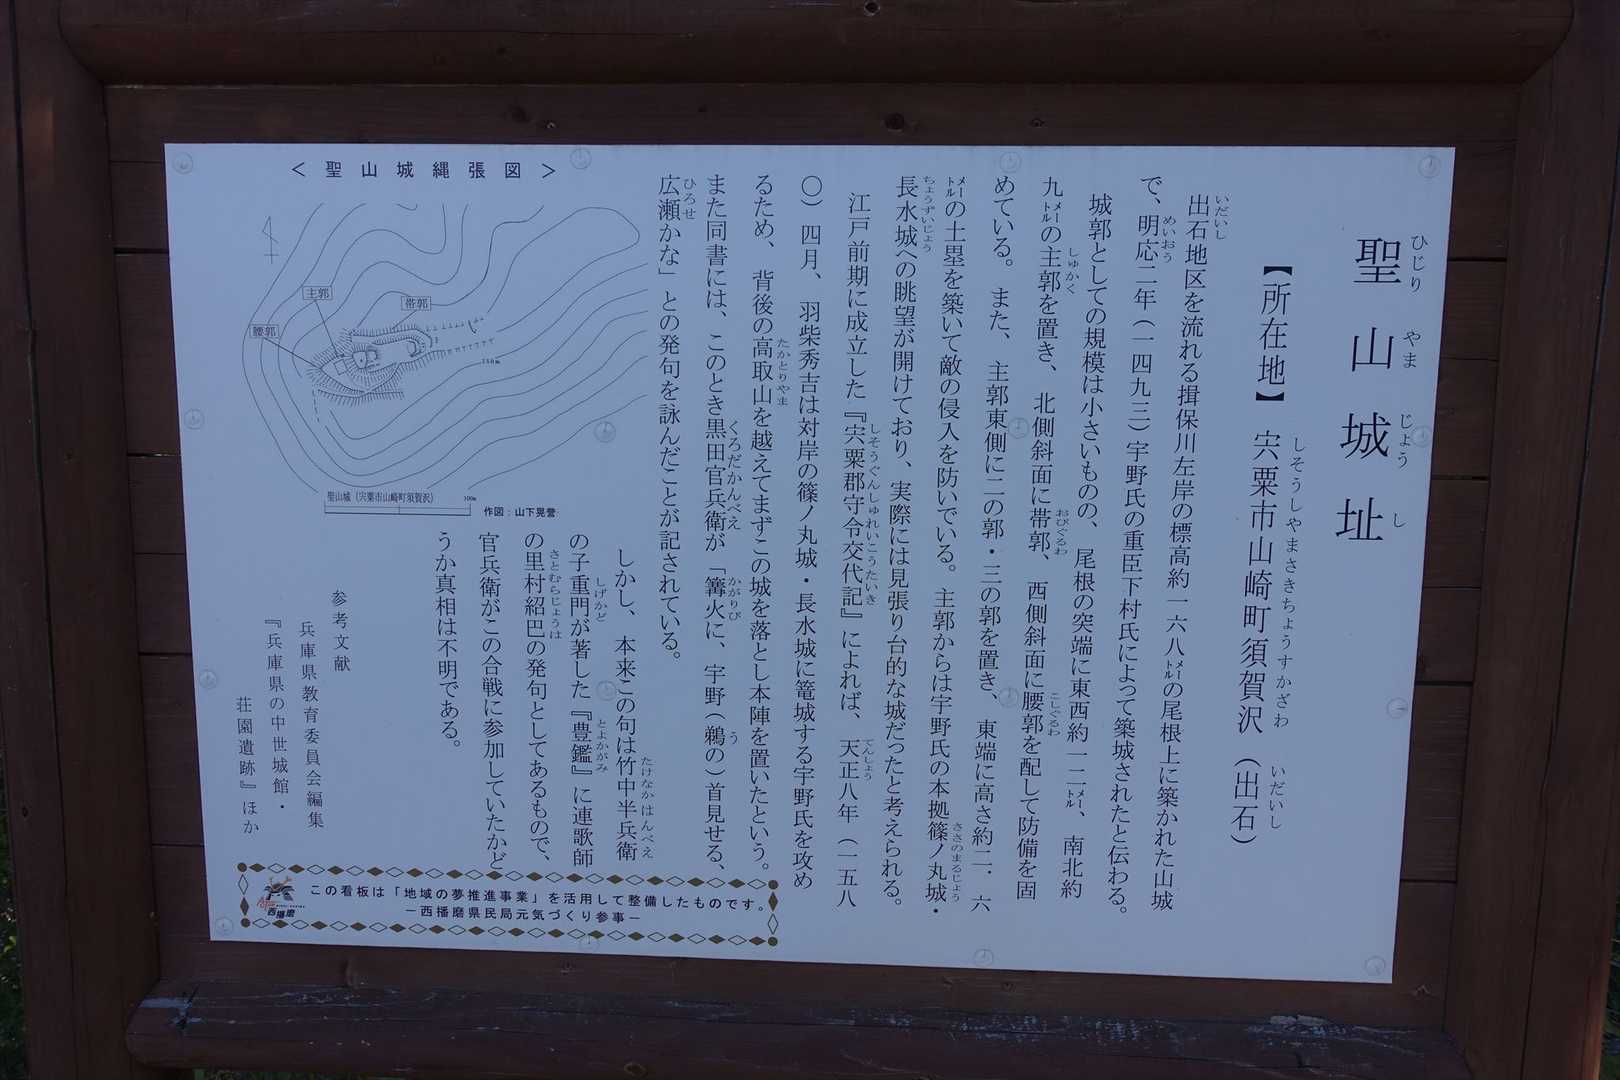 聖山城址
ひじり やま じょう し
【所在地】 宍粟市山崎町須賀沢（出石）
しそうしやまさきちょうすかざわ いだいし
出石地区を流れる揖保川左岸の標高約一六八㍍の尾根上に築かれた山城
いだいし
で、明応二年（一四九三）宇野氏の重臣下村氏によって築城されたと伝わる。
めいおう
城郭としての規模は小さいものの、尾根の突端に東西約一二㍍、南北約
九㍍の主郭を置き、北側斜面に帯郭、西側斜面に腰郭を配して防備を固
しゅかく おびぐるわ こしぐるわ
めている。また、主郭東側に二の郭・三の郭を置き、東端に高さ約二．六
㍍の土塁を築いて敵の侵入を防いでいる。主郭からは宇野氏の本拠篠ノ丸城・
ささのまるじょう
長水城への眺望が開けており、実際には見張り台的な城だったと考えられる。
ちょうずいじょう
江戸前期に成立した『宍粟郡守令交代記』によれば、天正八年（一五八
しそうぐんしゅれいこうたいき てんしょう
〇）四月、羽柴秀吉は対岸の篠ノ丸城・長水城に篭城する宇野氏を攻め
るため、背後の高取山を越えてまずこの城を落とし本陣を置いたという。
たかとりやま
また同書には、このとき黒田官兵衛が「篝火に、宇野（鵜の）首見せる、
くろだかんべえ かがりび う
広瀬かな」との発句を詠んだことが記されている。
ひろせ
しかし、本来この句は竹中半兵衛
たけなかはんべえ
の子重門が著した『豊鑑』に連歌師
しげかど とよかがみ
の里村紹巴の発句としてあるもので、
さとむらじょうは
官兵衛がこの合戦に参加していたかど
うか真相は不明である。
＜聖山城縄張図＞
主郭
帯郭
腰郭
150m
聖山城（宍粟市山崎町須賀沢）
100m
作図：山下晃誉
参考文献
兵庫県教育委員会編集
『兵庫県の中世城館・
荘園遺跡』ほか
西播磨
この看板は「地域の夢推進事業」を活用して整備したものです。
－西播磨県民局元気づくり参事－